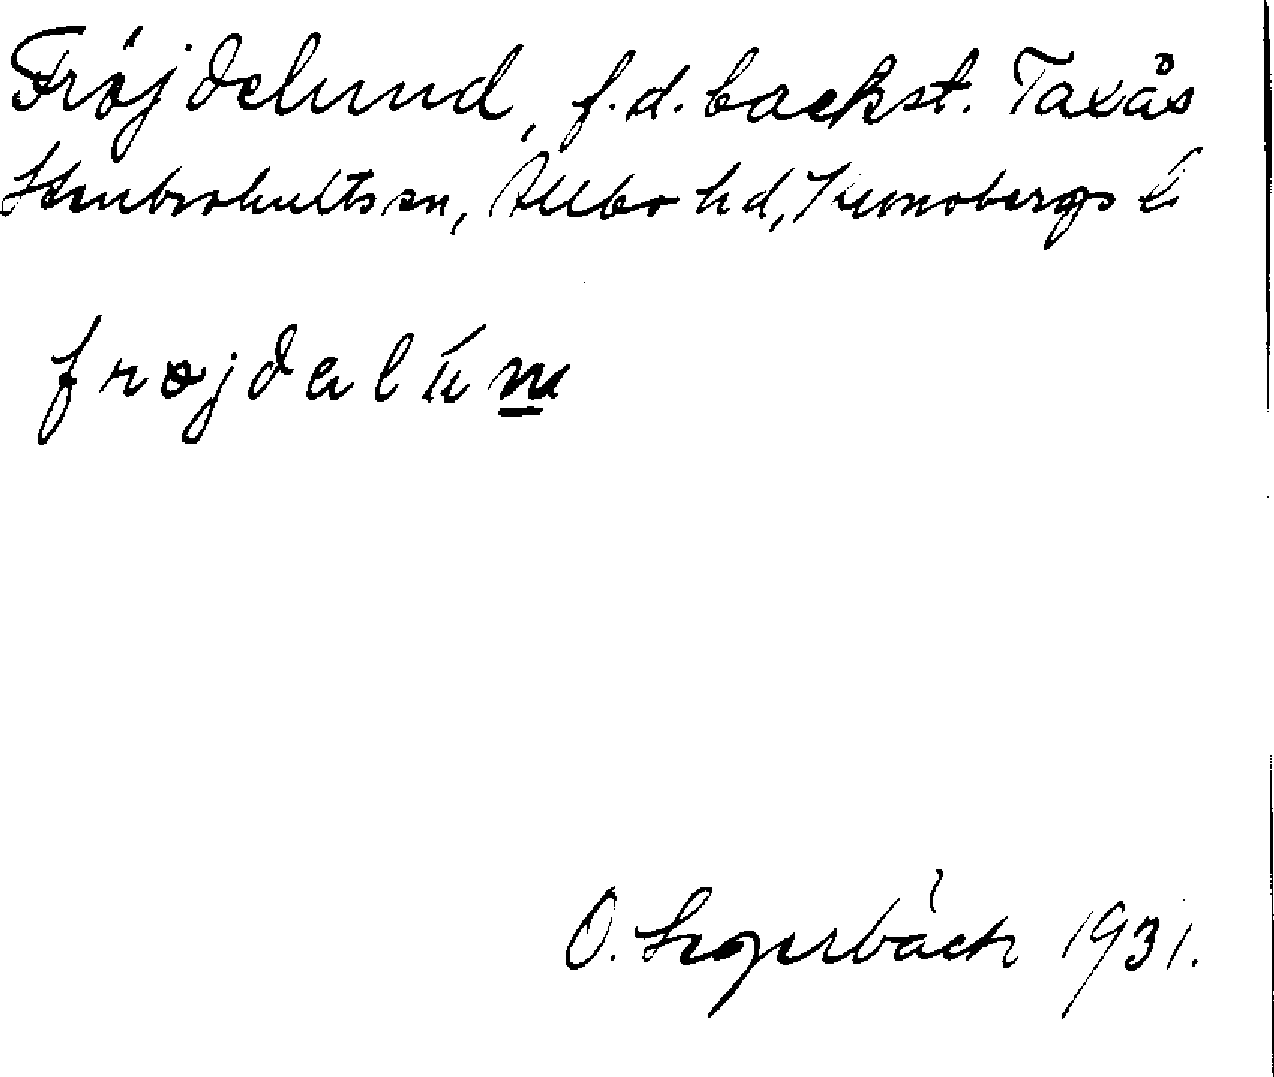 Fröjdelund, f.d. backst. Taxås
Stenbrohults sn, Allbo hd, Kronobergs l.
frøjdalún
O. Segerbäck 1931.